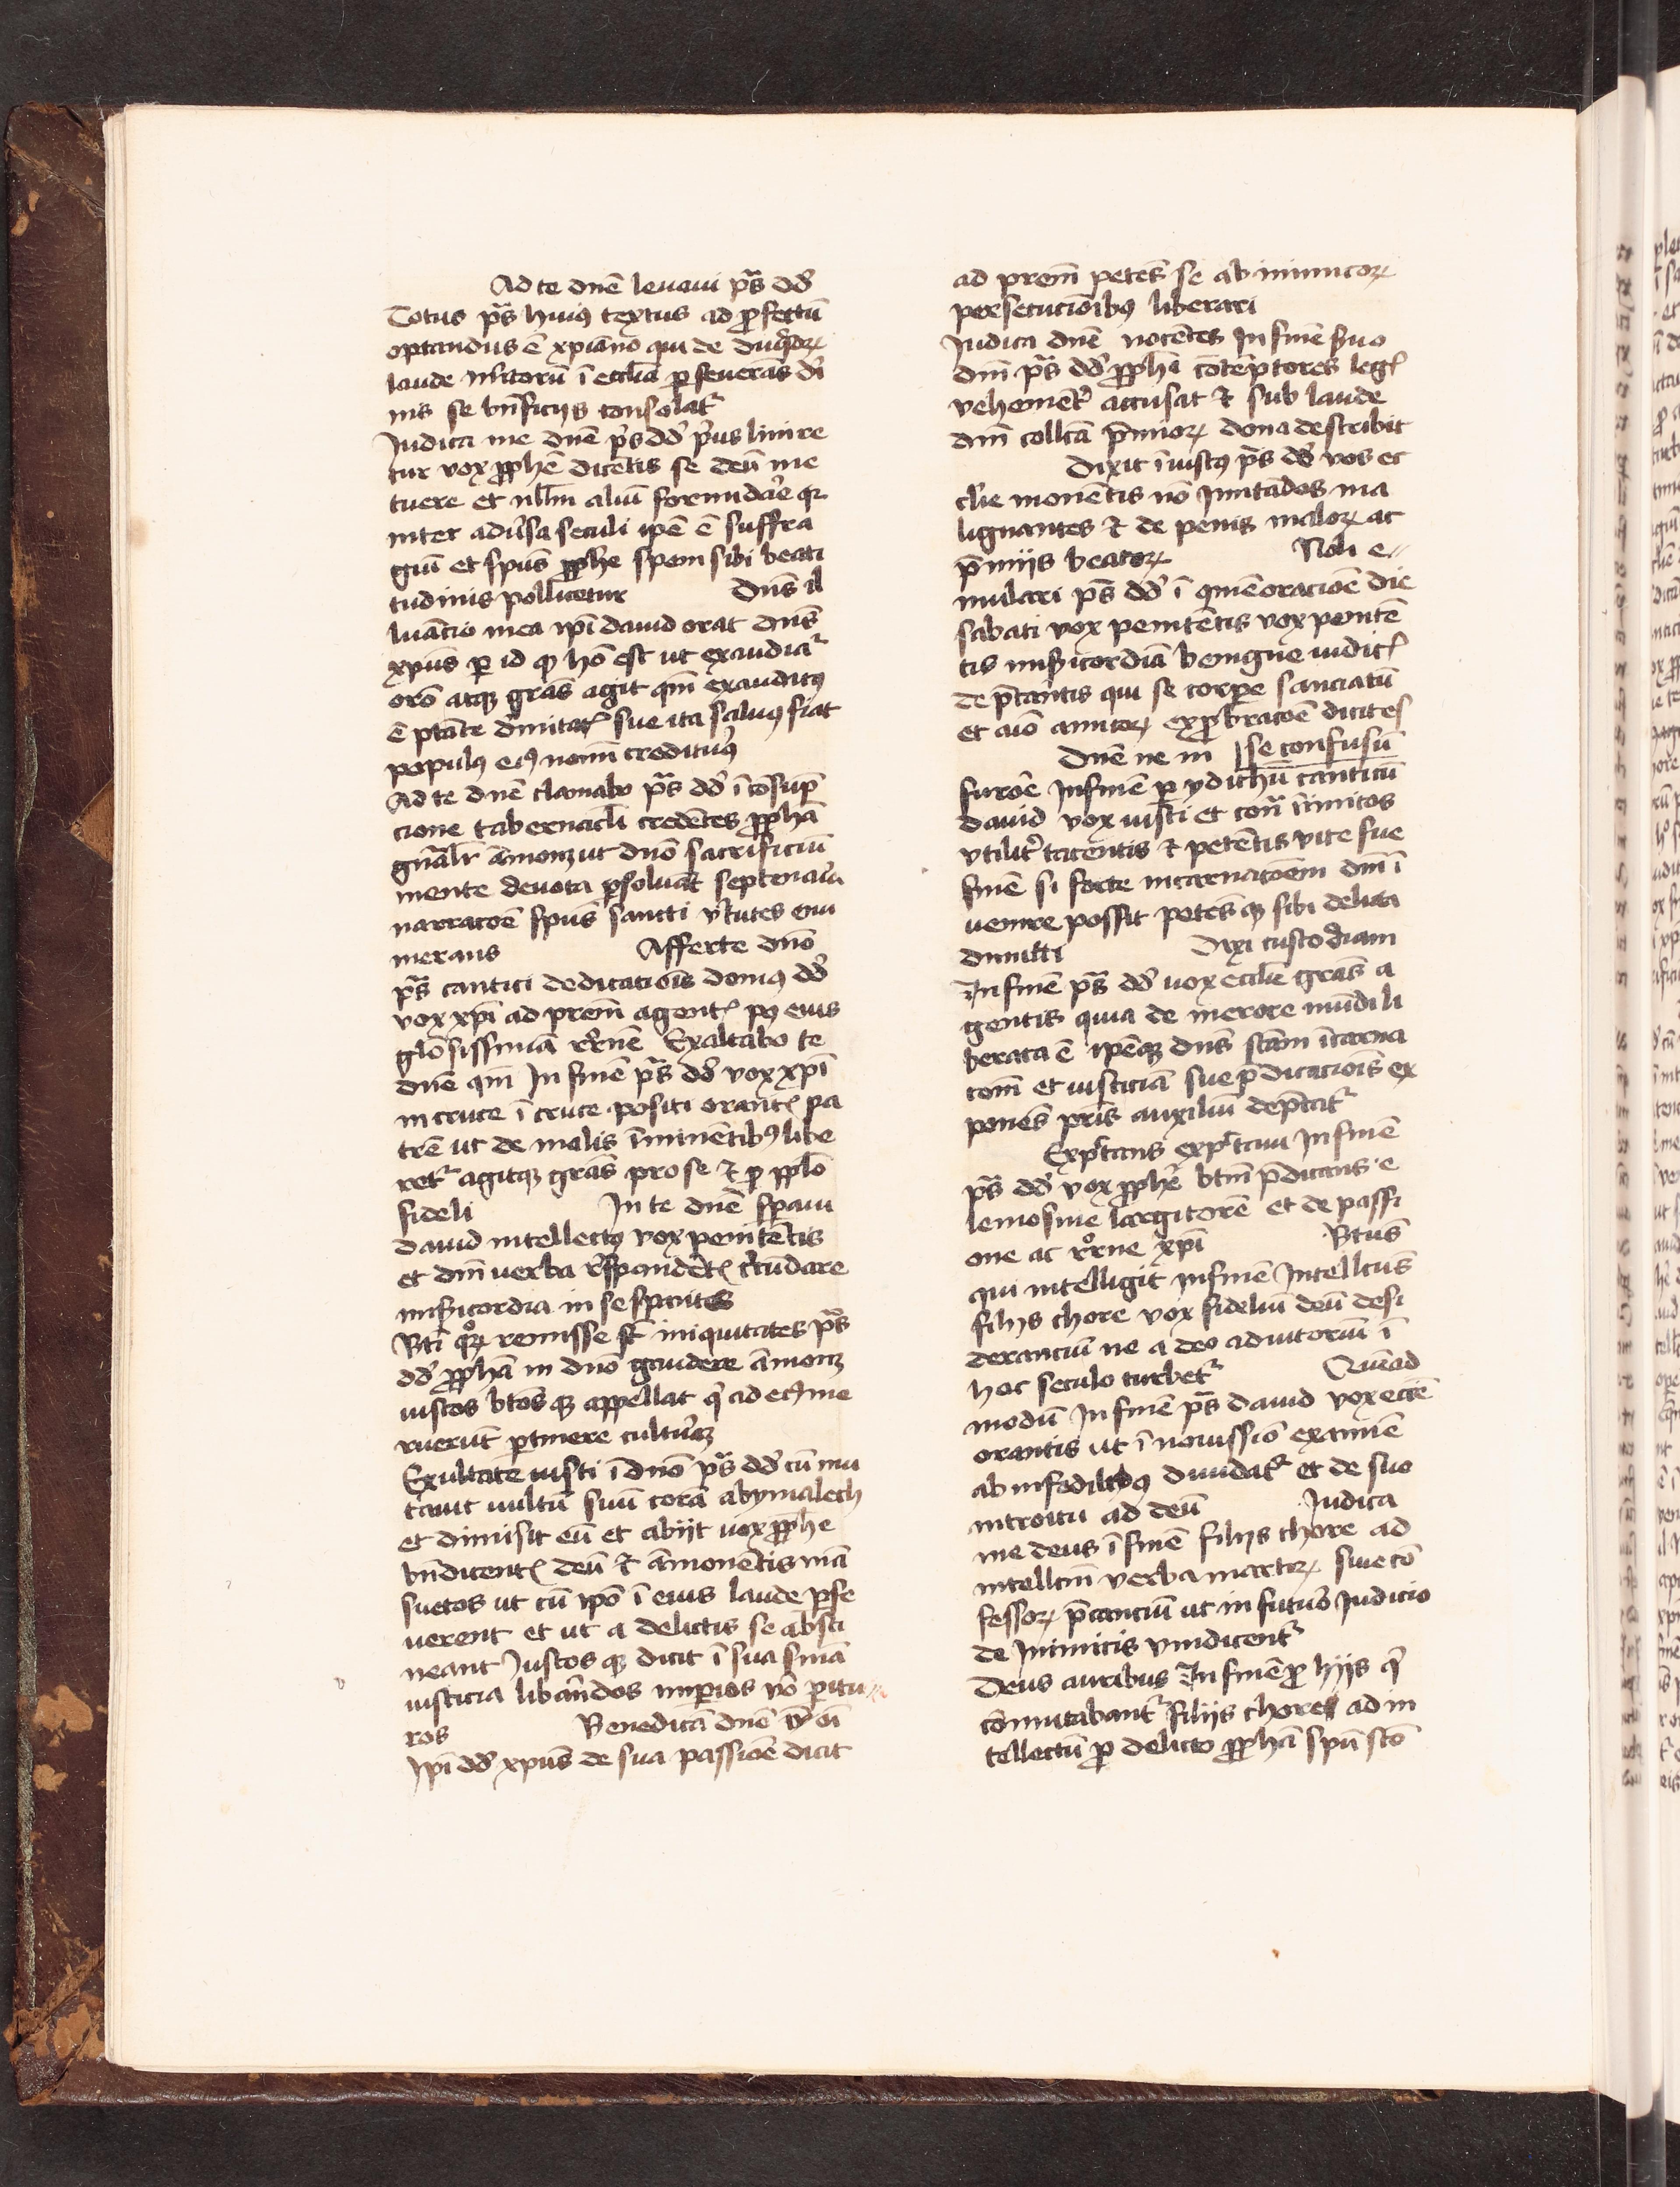 Ad te dnē leuaui pS̄ dd̄
Totus pS̄ huiꝰ textus ad ꝓfectū
optandus ē xpianō qui de
laude meritorū ī ecclīa ꝑseuerās di
nis se bn̄ficijs consolat᷑
Judica me dnē pS̄ dd̄ pꝰus linire
tur vox ꝓphē dicētis se deū me
tuere et nllm̄ aliū formidāe qꝛ
inter adūsa seculi ipē ē suffra
giū et spūs ꝓphe spem sibi beati
tudinis pollicetur Dn̄s il
luātio mea ipī dauid orat dn̄s
xpūs ꝑ id qꝫ hō est ut exaudiat᷑
orō atqꝫ grās agit qm̄ exauditꝰ
ē ptāte dīnitatꝭ sue ita saluꝰ fiat
populꝰ eiꝰ nomī crediturꝰ
Ad te dnē clamabo pS̄ dd̄ ī cōsūp
cione tabernaclī credētes ꝓphā
gn̄alr̄ āmonꝫ ut dnō sacrificiū
mente deuota ꝑsoluāt septenaīa
narracōē spūs sancti v̄tutes enu
merans Afferte dnō
pS̄ cantici dedicatiōīs domꝰ dd̄
vox xpī ad prem̄ agentꝭ pꝰ eius
glōsissimā rr̄nē Exaltabo te
dnē qm̄ In finē pS̄ dd̄ vox xpī
in cruce ī cruce positi orantꝭ pa
trē ut de malis īminētibꝰ libe
ret᷑ agitqꝫ grās pro se ⁊ ꝓ pplō
fideli In te dnē spaui
dauid intellectꝰ vox penitētis
et dnī uerba rn̄spondētꝭ
misericordia in se spantes
Btī qͦꝝ remisse st̄ iniquitates pS̄
dd̄ ꝓphā in dnō gaudere āmonꝫ
iustos btōs qꝫ appellat qͥ ad eiꝰ me
ruerūt ꝑtinere cultūꝫ
Exultate iusti ī dnō pS̄ dd̄ cū mu
tauit uultū suū corā abymalech
et dimisit eū et abijt uox ꝓphe
bn̄dicentꝭ deū ⁊ āmonētis mā
suetos ut cū ipō ī eius laude ꝑse
uerent et ut a delictis se absti
neant Justos qꝫ dicit ī sua finā
iusticia libāndos impios v̄o ꝑitu
ros Benedicā dnē ī oī
Ipī dd̄ xpūs de sua passiōē dicit
ad prem̄ petēs se ab inimicoꝝ
persecuciōibꝰ liberari
Judica dnē nocētes In finē suo
dnī pS̄ dd̄ ꝓphā cōtēptores legꝭ
vehementꝰ accusat ⁊ sub laude
dnī collcā p̄mioꝝ dona describit
Dixit īiustꝰ pS̄ dd̄ vos ec
clīe monētis nō Imitādos ma
lignantes ⁊ de penis maloꝝ ac
p̄mijs beatoꝝ Noli e
mulari pS̄ dd̄ ī
sabati vox penitētis vox penitē
tis misericordiā benigne iudicꝭ
dep̄cantis qui se corꝑe sanciatū
et aīo amicoꝝ exprobracōē dicites
Dnē ne in se confusū
furoē Infinē ꝑ ydithū canticū
dauid vox iusti et cont̄ īimicos
vtilitꝰ tacentis ⁊ petētis vite sue
finē si forte incarnatōēm dnī ī
uenire possit petēs qꝫ sibi delicta
dimitti Dixi custodiam
In finē pS̄ dd̄ uox ecclīe grās a
gentis quia de merore mūdi li
berata ē ipēqꝫ dn̄s scām īcarna
cōm et iusticiā sue p̄dicaciōis ex
ponēs pris̄ auxiliū dep̄cat᷑
Expc̄tans expc̄taui In finē
pS̄ dd̄ vox ꝓphe btm̄ p̄dicans e
lemosine largitorē et de passi
one ac rr̄ne xpī Btus̄
qui intelligit in finē Intellcūs
filijs chore vox fideliū deū desi
derantiū ne a deo adiutoriū ī
hoc seculo turbet᷑ Quēad
modū In finē pS̄ dauid vox ecclē
orantis ut ī nouissiō examīe
ab infidelibꝰ diuidat᷑ et de suo
introitu ad deū Judica
me deus ī finē filijs chore ad
intellcm̄ verba martꝝ siue cō
fessoꝝ p̄cantiū ut in futūo Judicio
de Inimicis vindicent᷑
Deus auribus In finē ꝓ hijs qͥ
cōmutabant᷑ filijs chore ad in
tellectū ꝓ delicto ꝓphā spū scō